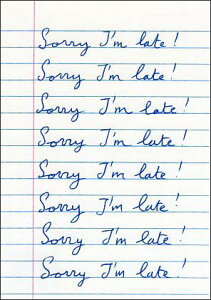 Sorry I'm late!
Sorry I'm late!
Sorry I'm late!
Sorry I'm late!
Sorry I'm late!
Sorry I'm late!
Sorry I'm late!
Sorry I'm late!